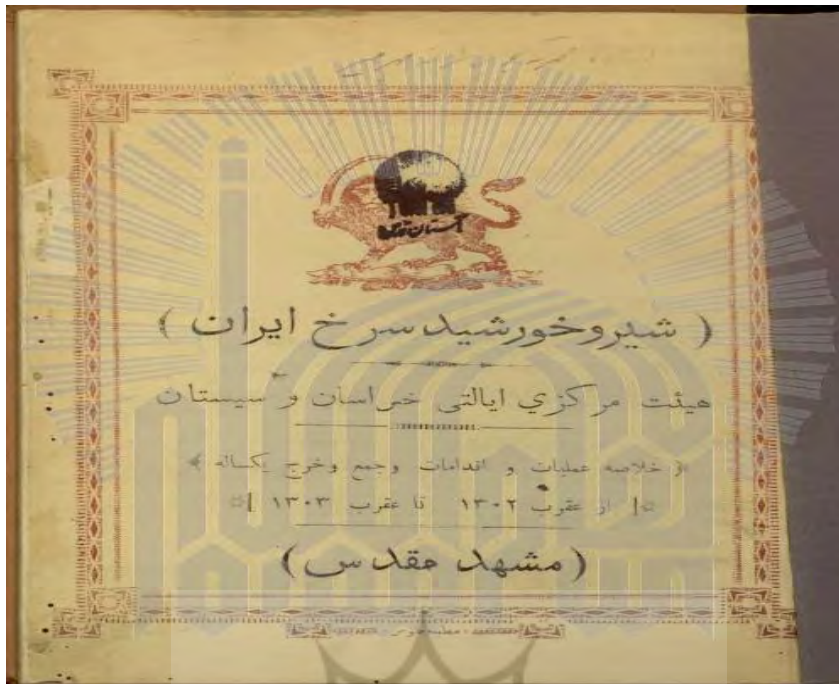 آستان قدس
( شیر و خورشید سرخ ایران )
هیئت مرکزي ایالتی خراسان و سیستان
خلاصه عملیات و اقدامات و جمع و خرج یکساله
از عقرب ۱۳۰۲ تا عقرب ۱۳۰۳
( مشهد مقدس )